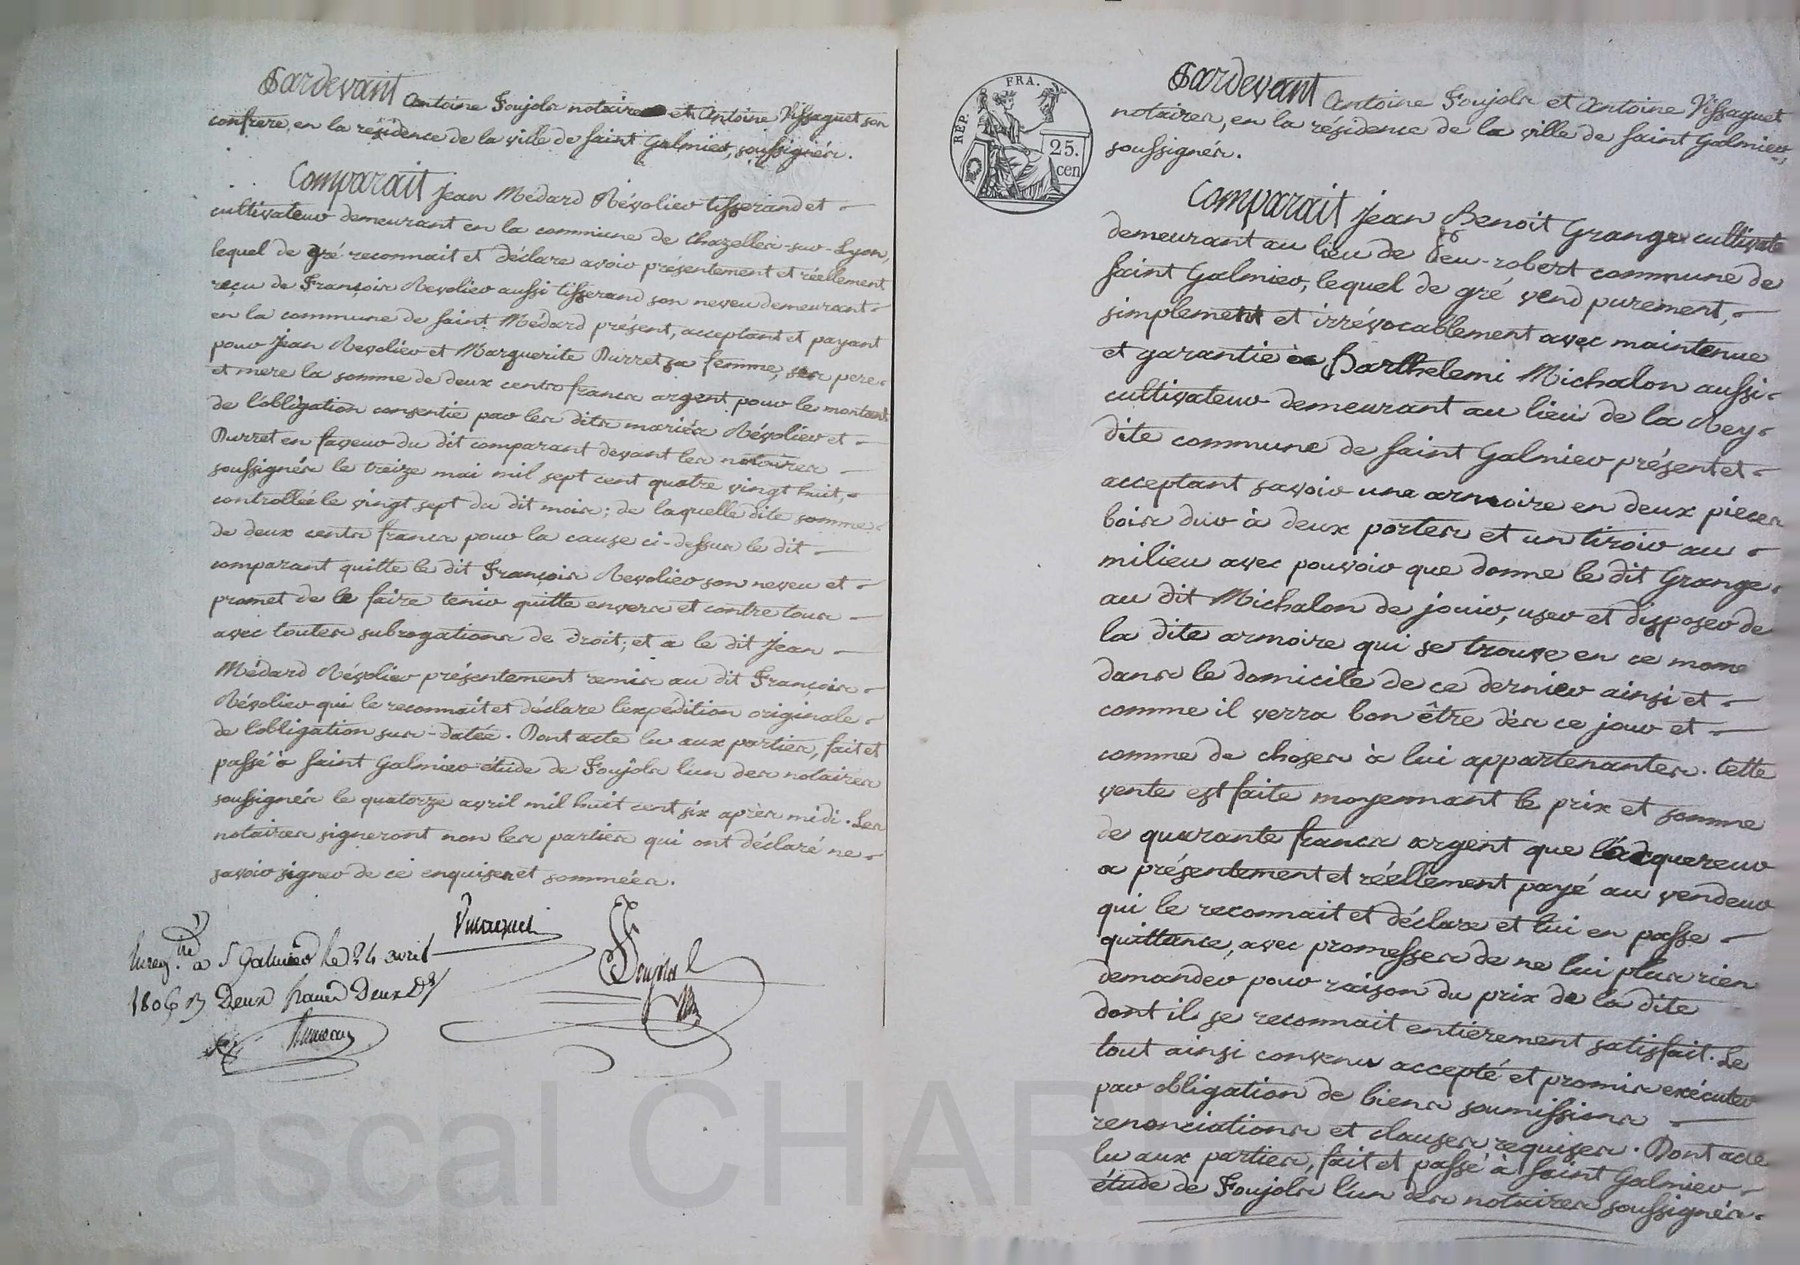 Pardevant Antoine Foujols notaire et Antoine Vissaguet son
confrere, en la résidence de la ville de Saint Galmier, soussignés.
Comparait Jean Médard Révolier tisserand et
cultivateur demeurant en la commune de Chazelles-sur-Lyon,
lequel de gré reconnait et déclare avoir présentement et réellement
reçu de François Revolier aussi tisserand son neveu demeurant
en la commune de Saint Médard présent, acceptant et payant
pour Jean Revolier et Marguerite Durret sa femme, ses pere
et mere la somme de deux cents francs argent pour le montant
de l'obligation consentie par les dits mariés Révolier et
Durret en faveur du dit comparant devant les notaires
soussignés le treize mai mil sept cent quatre vingt huit,
controllée le vingt sept du dit mois; de laquelle dite somme
de deux cents francs pour la cause ci-dessus le dit
comparant quitte le dit François Revolier son neveu et
promet de le faire tenir quitte envers et contre tous
avec toutes subrogations de droit; et a le dit Jean
Médard Révolier présentement remis au dit François
Révolier qui le reconnait et déclare l'expédition originale
de l'obligation sus-datée. Dont acte lu aux parties, fait et
passé à Saint Galmier étude de Foujols l'un des notaires
soussignés le quatorze avril mil huit cent six après midi. Les
notaires signeront non les parties qui ont déclaré ne
savoir signer de ce enquises et sommées.
Vissaguet
Foujols
Enreg. tré à St Galmier le 24 avril
1806 Deux francs Deux
REP. FRA.
25.
cen
Pardevant Antoine Foujols et Antoine Vissaguet
notaires, en la résidence de la ville de Saint Galmier,
soussignés.
Comparait Jean Benoit Grange cultivate
demeurant au lieu de Peu-robert commune de
Saint Galmier, lequel de gré vend purement,
simplement et irrévocablement avec maintenue
et garantie à Barthelemi Michalon aussi
cultivateur demeurant au lieu de la Rey
dite commune de Saint Galmier présent et
acceptant savoir une armoire en deux pieces
bois dur à deux portes et un tiroir au
milieu avec pouvoir que donne le dit Grange
au dit Michalon de jouir, user et disposer de
la dite armoire qui se trouve en ce mome
dans le domicile de ce dernier ainsi et
comme il verra bon être dès ce jour et
comme de choses à lui appartenantes. Cette
vente est faite moyennant le prix et somme
de quarante francs argent que l'acquereur
a présentement et réellement payé au vendeur
qui le reconnait et déclare et lui en passe
quittance, avec promesses de ne lui plus rien
demander pour raison du prix de la dite
dont il se reconnait entièrement satisfait. Le
tout ainsi convenu accepté et promis exécuter
par obligation de biens soumissions
renonciations et clauses requises. Dont acte
lu aux parties, fait et passé à Saint Galmier
étude de Foujols l'un des notaires soussignés.
Pascal CHAR